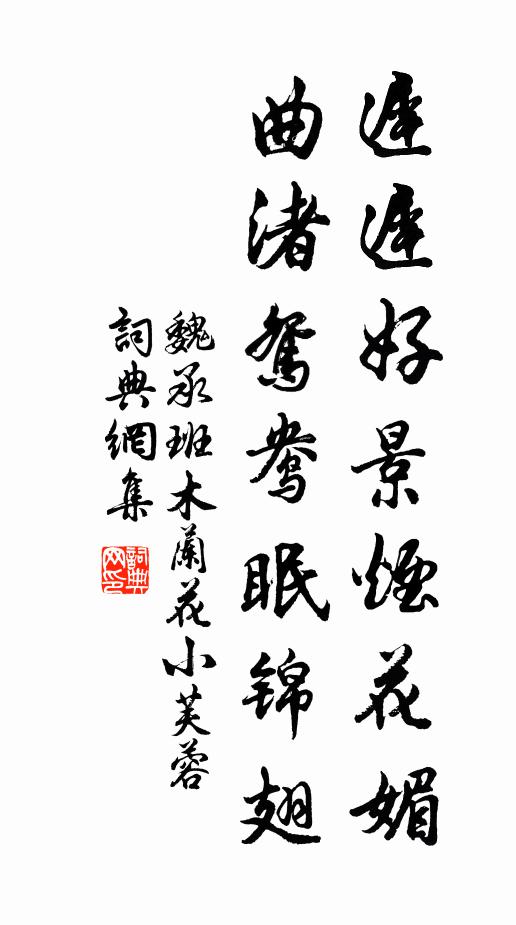 遲遲好景煙花媚
曲渚鴛鴦眠锦翅
魏承班木蘭花小芙蓉
詞典網集
詞典网印